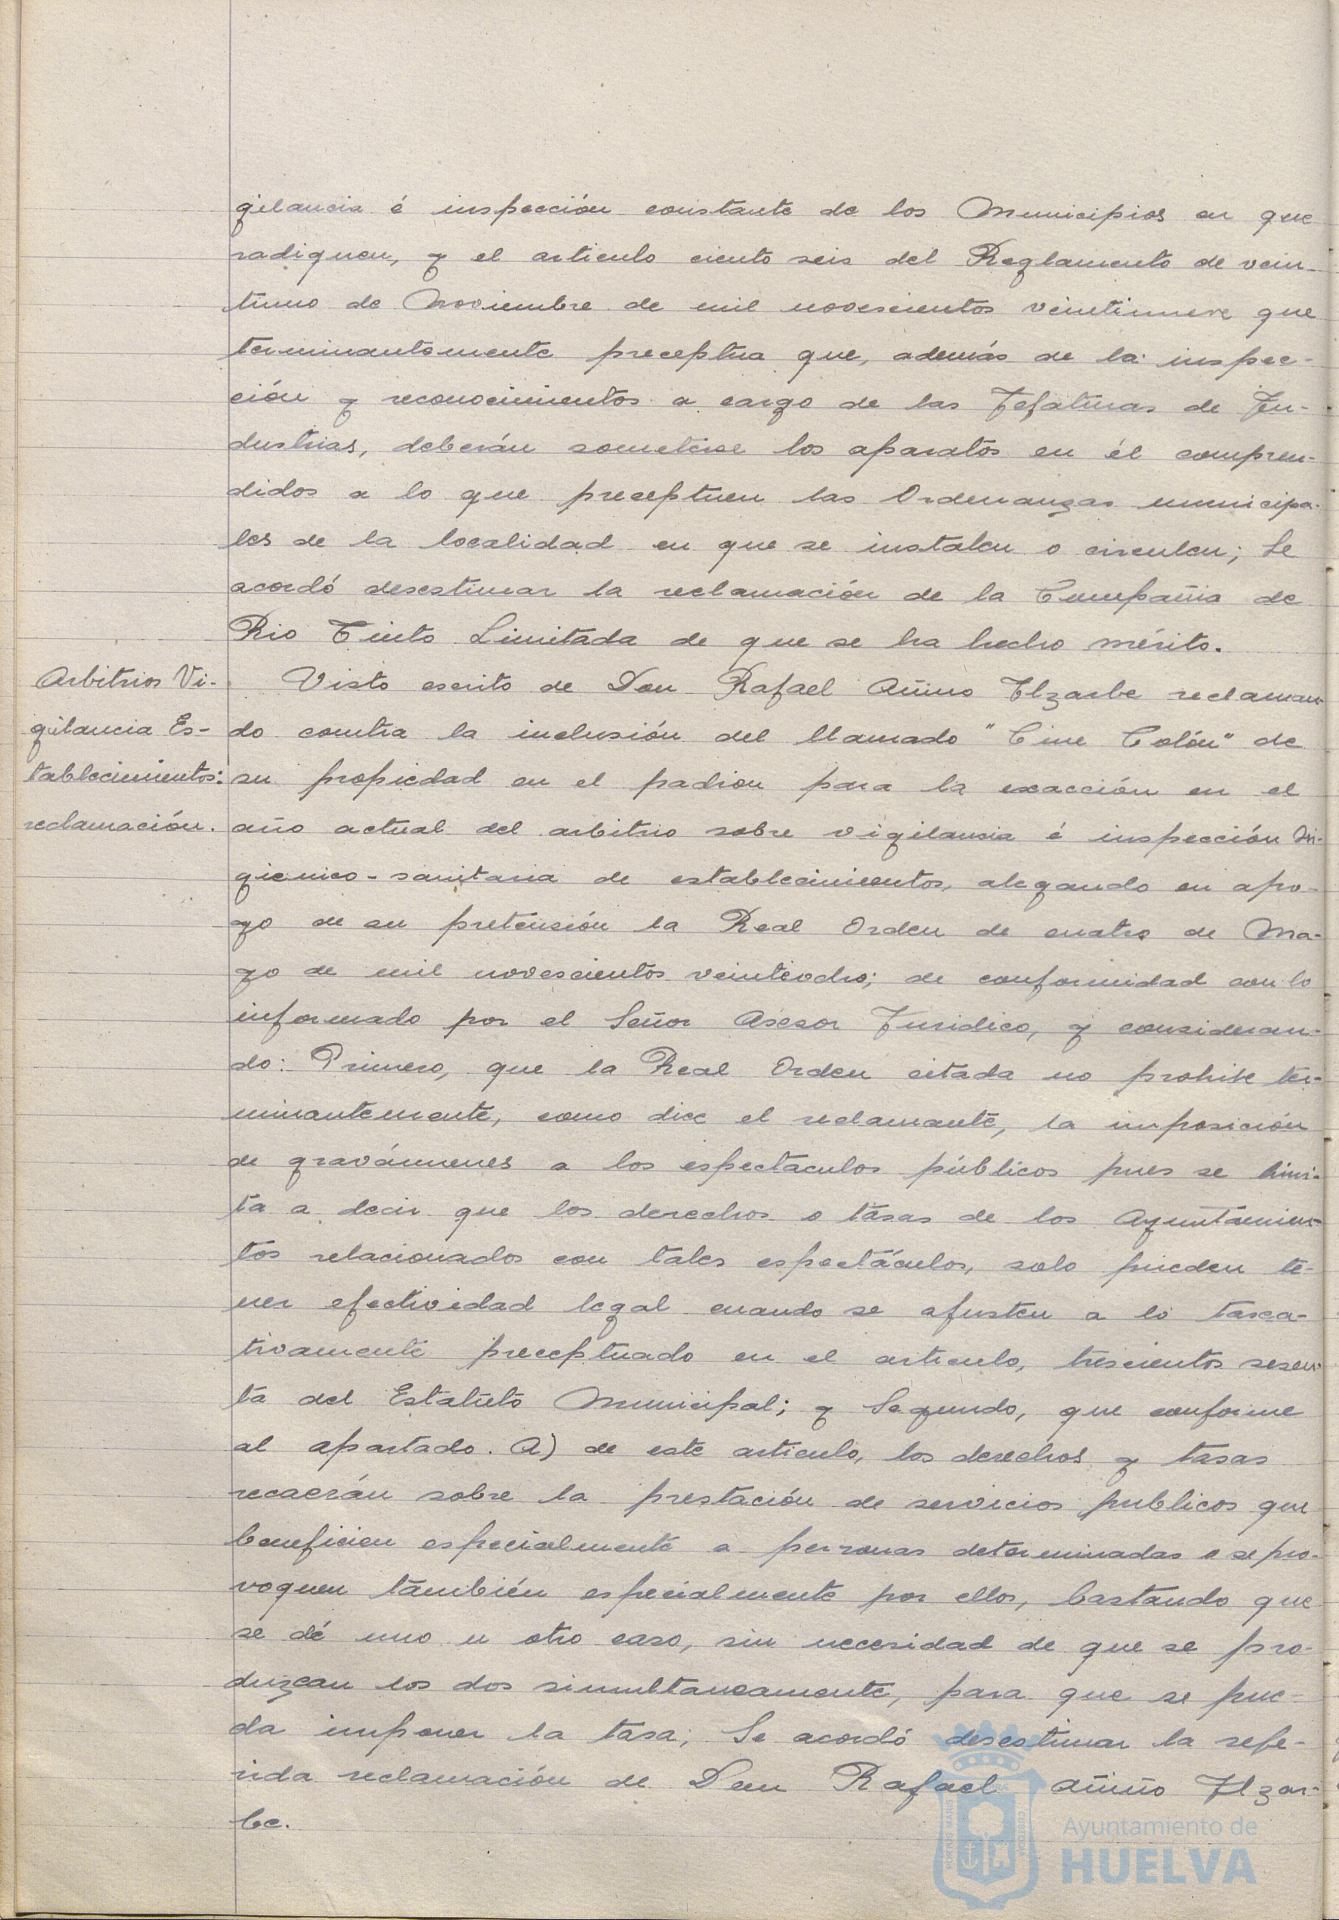 gilancia é inspección constante de los Municipios en que
radiquen, y el articulo ciento seis del Reglamento de vein-
tiuno de Noviembre de mil novescientos veintinueve que
terminantemente preceptua que, además de la inspec-
ción y reconocimientos a cargo de las Jefaturas de In-
dustrias, deberán someterse los aparatos en él compren-
didos a lo que preceptuen las Ordenanzas municipa-
les de la localidad en que se instalen o circulen; Se
acordó desestimar la reclamación de la Compañia de
Rio Tinto Limitada de que se ha hecho mérito.
Arbitrios Vi-
gilancia Es-
tablecimientos:
reclamación.
Visto escrito de Don Rafael Añino Ilzarbe reclaman-
do contra la inclusión del llamado "Cine Colón" de
su propiedad en el padron para la exacción en el
año actual del arbitrio sobre vigilansia é inspección hi-
gienico-sanitaria de establecimientos, alegando en apo-
yo de su pretensión la Real Orden de cuatro de Ma-
yo de mil novescientos veintiocho; de conformidad con lo
informado por el Señor Asesor Juridico, y consideran-
do: Primero, que la Real Orden citada no prohibe ter-
minantemente, como dice el reclamante, la imposición
de gravámenes a los espectaculos públicos pues se limi-
ta a decir que los derechos o tasas de los Ayuntamien-
tos relacionados con tales espectáculos, solo pueden te-
ner efectividad legal cuando se ajusten a lo taxa-
tivamente preceptuado en el articulo, trescientos sesen-
ta del Estatuto Municipal; y Segundo, que conforme
al apartado. A) de este articulo, los derechos y tasas
recaerán sobre la prestación de servicios publicos que
beneficien especialmente a personas determinadas o se pro-
voquen también especialmente por ellos, bastando que
se dé uno u otro caso, sin necesidad de que se pro-
duzcan los dos simultaneamente, para que se pue-
da imponer la tasa; Se acordó desestimar la refe-
rida reclamación de Don Rafael Añino Ilzar-
be.
Ayuntamiento de
HUELVA